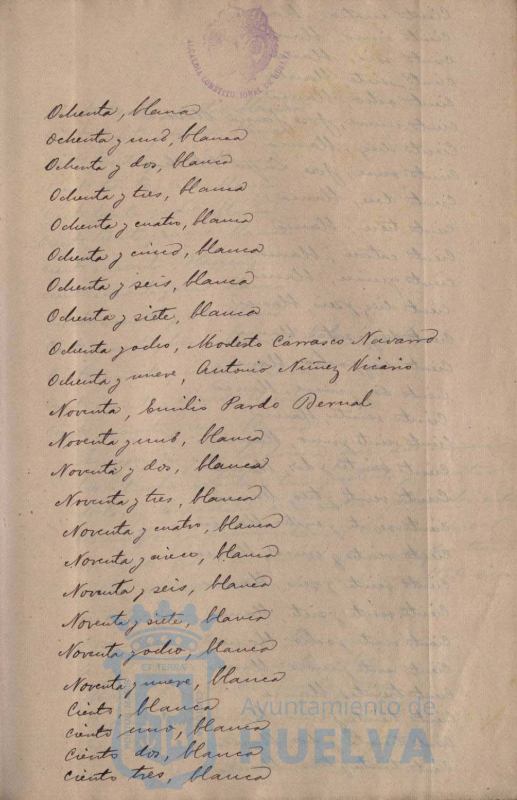 ALCALDIA CONSTITUCIONAL DE HUELVA
Ochenta, blanca
Ochenta y uno, blanca
Ochenta y dos, blanca
Ochenta y tres, blanca
Ochenta y cuatro, blanca
Ochenta y cinco, blanca
Ochenta y seis, blanca
Ochenta y siete, blanca
Ochenta y ocho, Modesto Carrasco Navarro
Ochenta y nueve, Antonio Núñez Vicario
Noventa, Emilio Pardo Bernal
Noventa y uno, blanca
Noventa y dos, blanca
Noventa y tres, blanca
Noventa y cuatro, blanca
Noventa y cinco, blanca
Noventa y seis, blanca
Noventa y siete, blanca
Noventa y ocho, blanca
Noventa y nueve, blanca
Ciento, blanca
Ciento uno, blanca
Ciento dos, blanca
Ciento tres, blanca
Ayuntamiento de
HUELVA